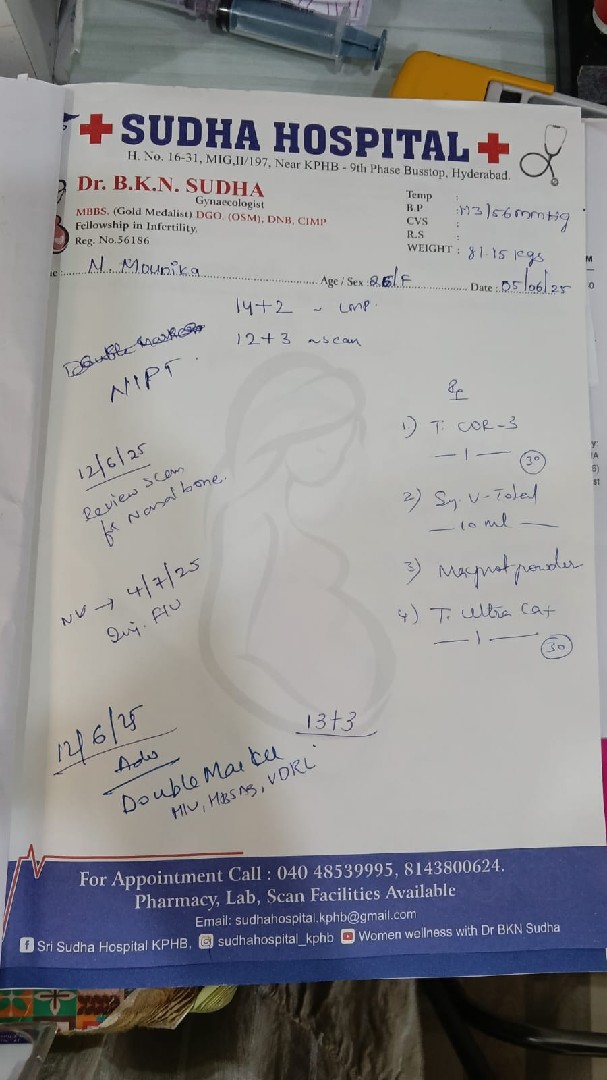 SUDHA HOSPITAL
H. No. 16-31, MIG,II/197, Near KPHB - 9th Phase Busstop, Hyderabad.
Dr. B.K.N. SUDHA
Gynaecologist
MBBS, (Gold Medalist) DGO, (OSM), DNB, CIMP
Fellowship in Infertility,
Reg. No.56186
Temp :
B.P : 113/56mmHg
CVS :
R.S :
WEIGHT : 81.15 kgs
N. Mounika Age / Sex : /F Date : 05/06/25
14+2 - LMP.
12+3 ~ scan
NIPT.
12/6/25
Review scan
for Nasal bone.
NV → 4/7/25
Rp
1) T. COR-3
— 1 — 30
2) Sy. V-Total
— 10 ml —
3) powder
4) T. Ultra Cat
— 1 — 30
12/6/25
Adv
13+3
Double Marker
HIV, HBSAg, VDRL
For Appointment Call : 040 48539995, 8143800624.
Pharmacy, Lab, Scan Facilities Available
Email: sudhahospital.kphb@gmail.com
Sri Sudha Hospital KPHB, sudhahospital_kphb Women wellness with Dr BKN Sudha